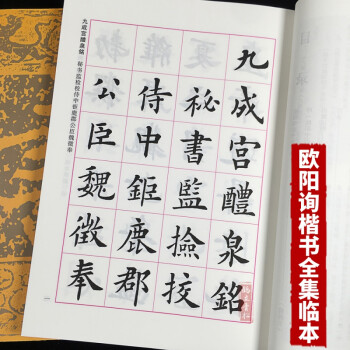 九成宮醴泉銘
祕書監撿挍
侍中鉅鹿郡
公臣魏徵奉
九成宫醴泉铭 秘书监检校侍中钜鹿郡公臣魏徵奉
一
欧阳询楷书全集临本